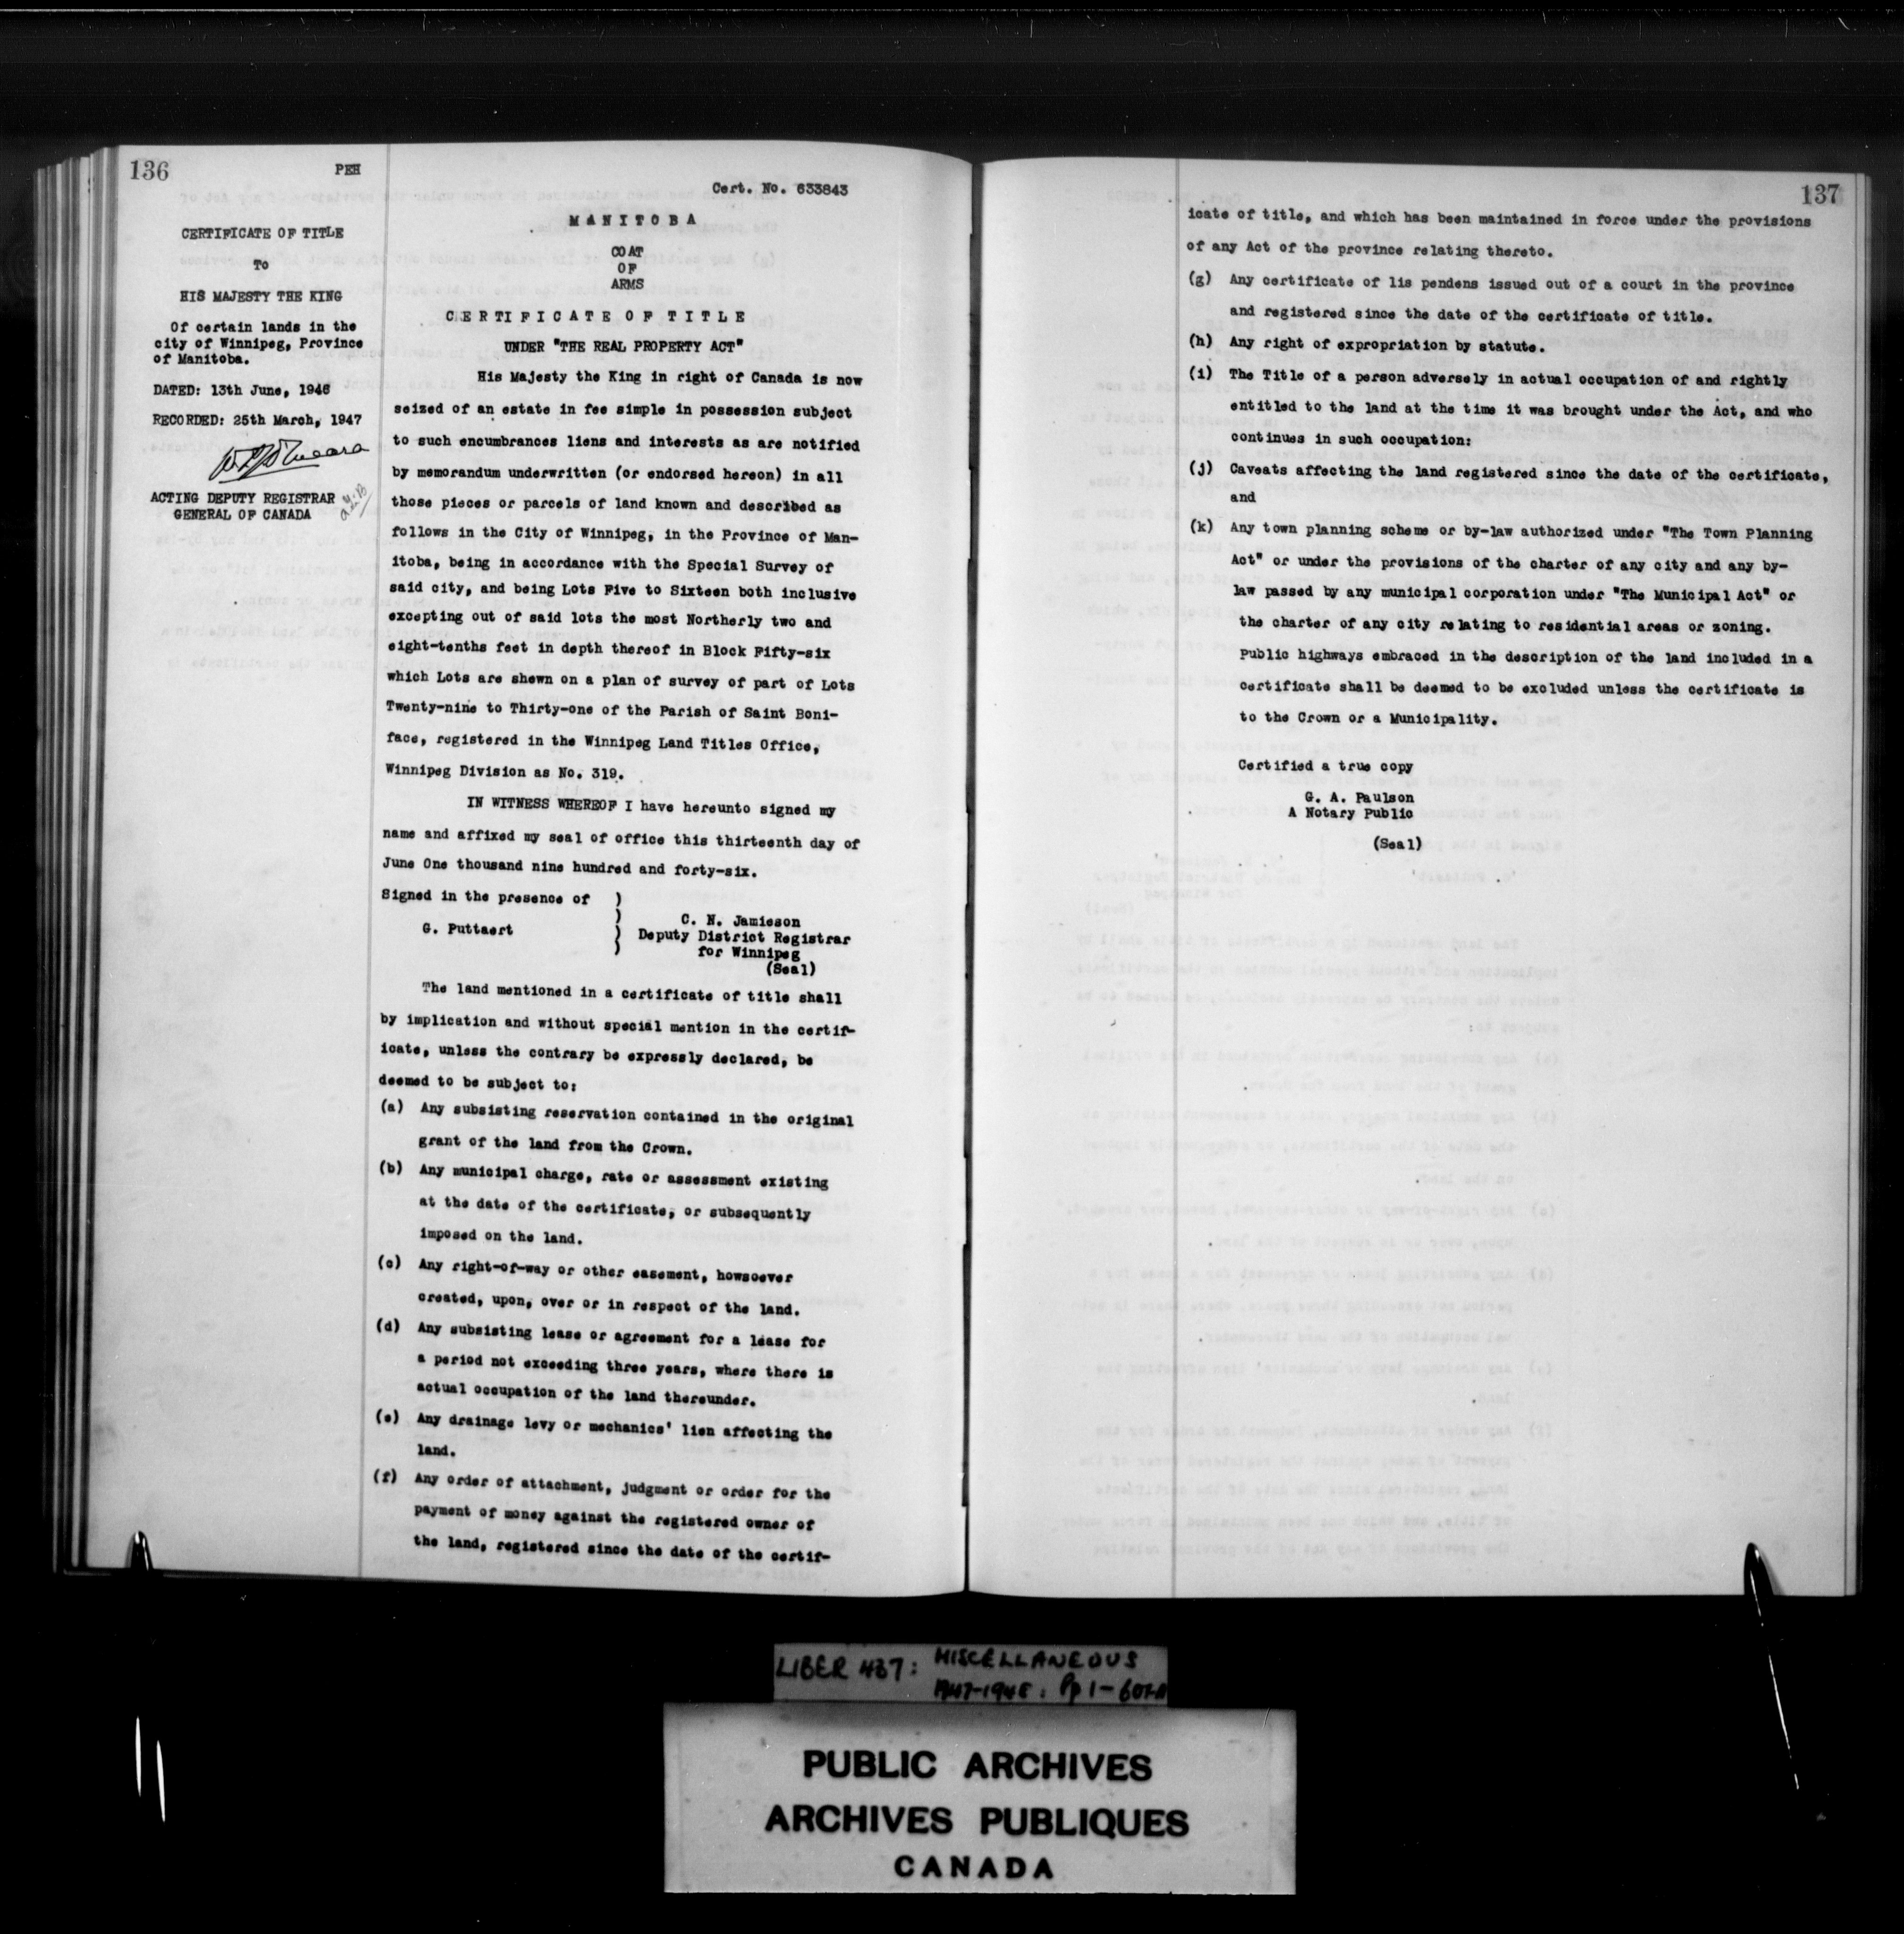 136
PEH
CERTIFICATE OF TITLE
To
HIS MAJESTY THE KING
Of certain lands in the
city of Winnipeg, Province
of Manitoba.
DATED: 13th June, 1946
RECORDED: 25th March, 1947
ACTING DEPUTY REGISTRAR
GENERAL OF CANADA
Cert. No. 633843
MANITOBA
COAT
OF
ARMS
CERTIFICATE OF TITLE
UNDER "THE REAL PROPERTY ACT"
His Majesty the King in right of Canada is now
seized of an estate in fee simple in possession subject
to such encumbrances liens and interests as are notified
by memorandum underwritten (or endorsed hereon) in all
those pieces or parcels of land known and described as
follows in the City of Winnipeg, in the Province of Man-
itoba, being in accordance with the Special Survey of
said city, and being Lots Five to Sixteen both inclusive
excepting out of said lots the most Northerly two and
eight-tenths feet in depth thereof in Block Fifty-six
which Lots are shewn on a plan of survey of part of Lots
Twenty-nine to Thirty-one of the Parish of Saint Boni-
face, registered in the Winnipeg Land Titles Office,
Winnipeg Division as No. 319.
IN WITNESS WHEREOF I have hereunto signed my
name and affixed my seal of office this thirteenth day of
June One thousand nine hundred and forty-six.
Signed in the presence of )
G. Puttaert ) C. N. Jamieson
) Deputy District Registrar
) for Winnipeg
(Seal)
The land mentioned in a certificate of title shall
by implication and without special mention in the certif-
icate, unless the contrary be expressly declared, be
deemed to be subject to:
(a) Any subsisting reservation contained in the original
grant of the land from the Crown.
(b) Any municipal charge, rate or assessment existing
at the date of the certificate, or subsequently
imposed on the land.
(c) Any right-of-way or other easement, howsoever
created, upon, over or in respect of the land.
(d) Any subsisting lease or agreement for a lease for
a period not exceeding three years, where there is
actual occupation of the land thereunder.
(e) Any drainage levy or mechanics' lien affecting the
land.
(f) Any order of attachment, judgment or order for the
payment of money against the registered owner of
the land, registered since the date of the certif-
137
icate of title, and which has been maintained in force under the provisions
of any Act of the province relating thereto.
(g) Any certificate of lis pendens issued out of a court in the province
and registered since the date of the certificate of title.
(h) Any right of expropriation by statute.
(i) The Title of a person adversely in actual occupation of and rightly
entitled to the land at the time it was brought under the Act, and who
continues in such occupation:
(j) Caveats affecting the land registered since the date of the certificate,
and
(k) Any town planning scheme or by-law authorized under "The Town Planning
Act" or under the provisions of the charter of any city and any by-
law passed by any municipal corporation under "The Municipal Act" or
the charter of any city relating to residential areas or zoning.
Public highways embraced in the description of the land included in a
certificate shall be deemed to be excluded unless the certificate is
to the Crown or a Municipality.
Certified a true copy
G. A. Paulson
A Notary Public
(Seal)
LIBER 437: MISCELLANEOUS
1947-1948: Pp 1-
PUBLIC ARCHIVES
ARCHIVES PUBLIQUES
CANADA